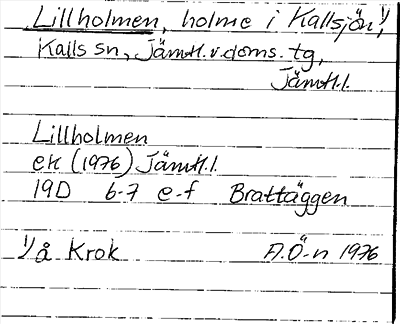 Lillholmen, holme i Kallsjön,¹⁾
Kalls sn, Jämtl.v.doms.tg,
Jämtl.l.
Lillholmen
ek (1976) Jämtl.l.
19D 6-7 e-f Brattäggen
¹⁾ å Krok A.Ö-n 1976